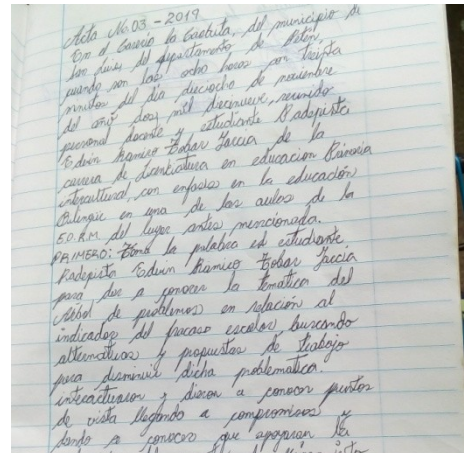 Acta No. 03 - 2019
En el Caserío la Gratuita, del municipio de
San Luis, del departamento de Petén,
cuando son las ocho horas con treinta
minutos del día dieciocho de noviembre
del año dos mil diecinueve, reunido
personal docente y estudiante Padepista
Edvin Ramiro Tobar García de la
carrera de Licenciatura en educación Primaria
intercultural, con enfasis en la educación
Bilingüe en una de las aulas de la
E.O.R.M del lugar antes mencionada.
PRIMERO: Toma la palabra el estudiante
Padepista Edvin Ramiro Tobar García
para dar a conocer la tematica del
Arbol de problemas en relación al
indicador del fracaso escolar, buscando
alternativas y propuestas de trabajo
para disminuir dicha problematica.
interactuaron y dieron a conocer puntos
de vista llegando a compromisos y
dando a conocer que apoyaran la